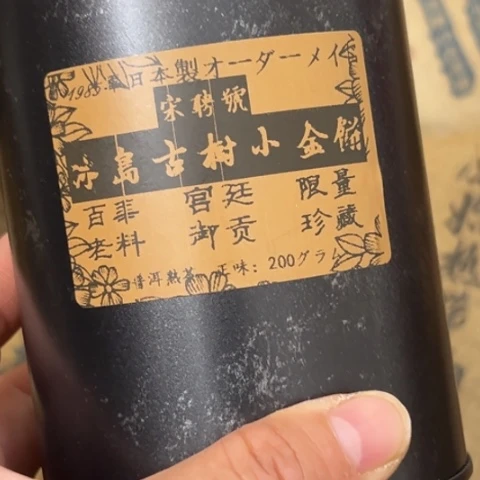 1985 日本製オーダーメイ
宋聘號
島古樹小金餅
百 宫廷 限量
老料 御贡 珍藏
普洱熟茶 正味：200グラム